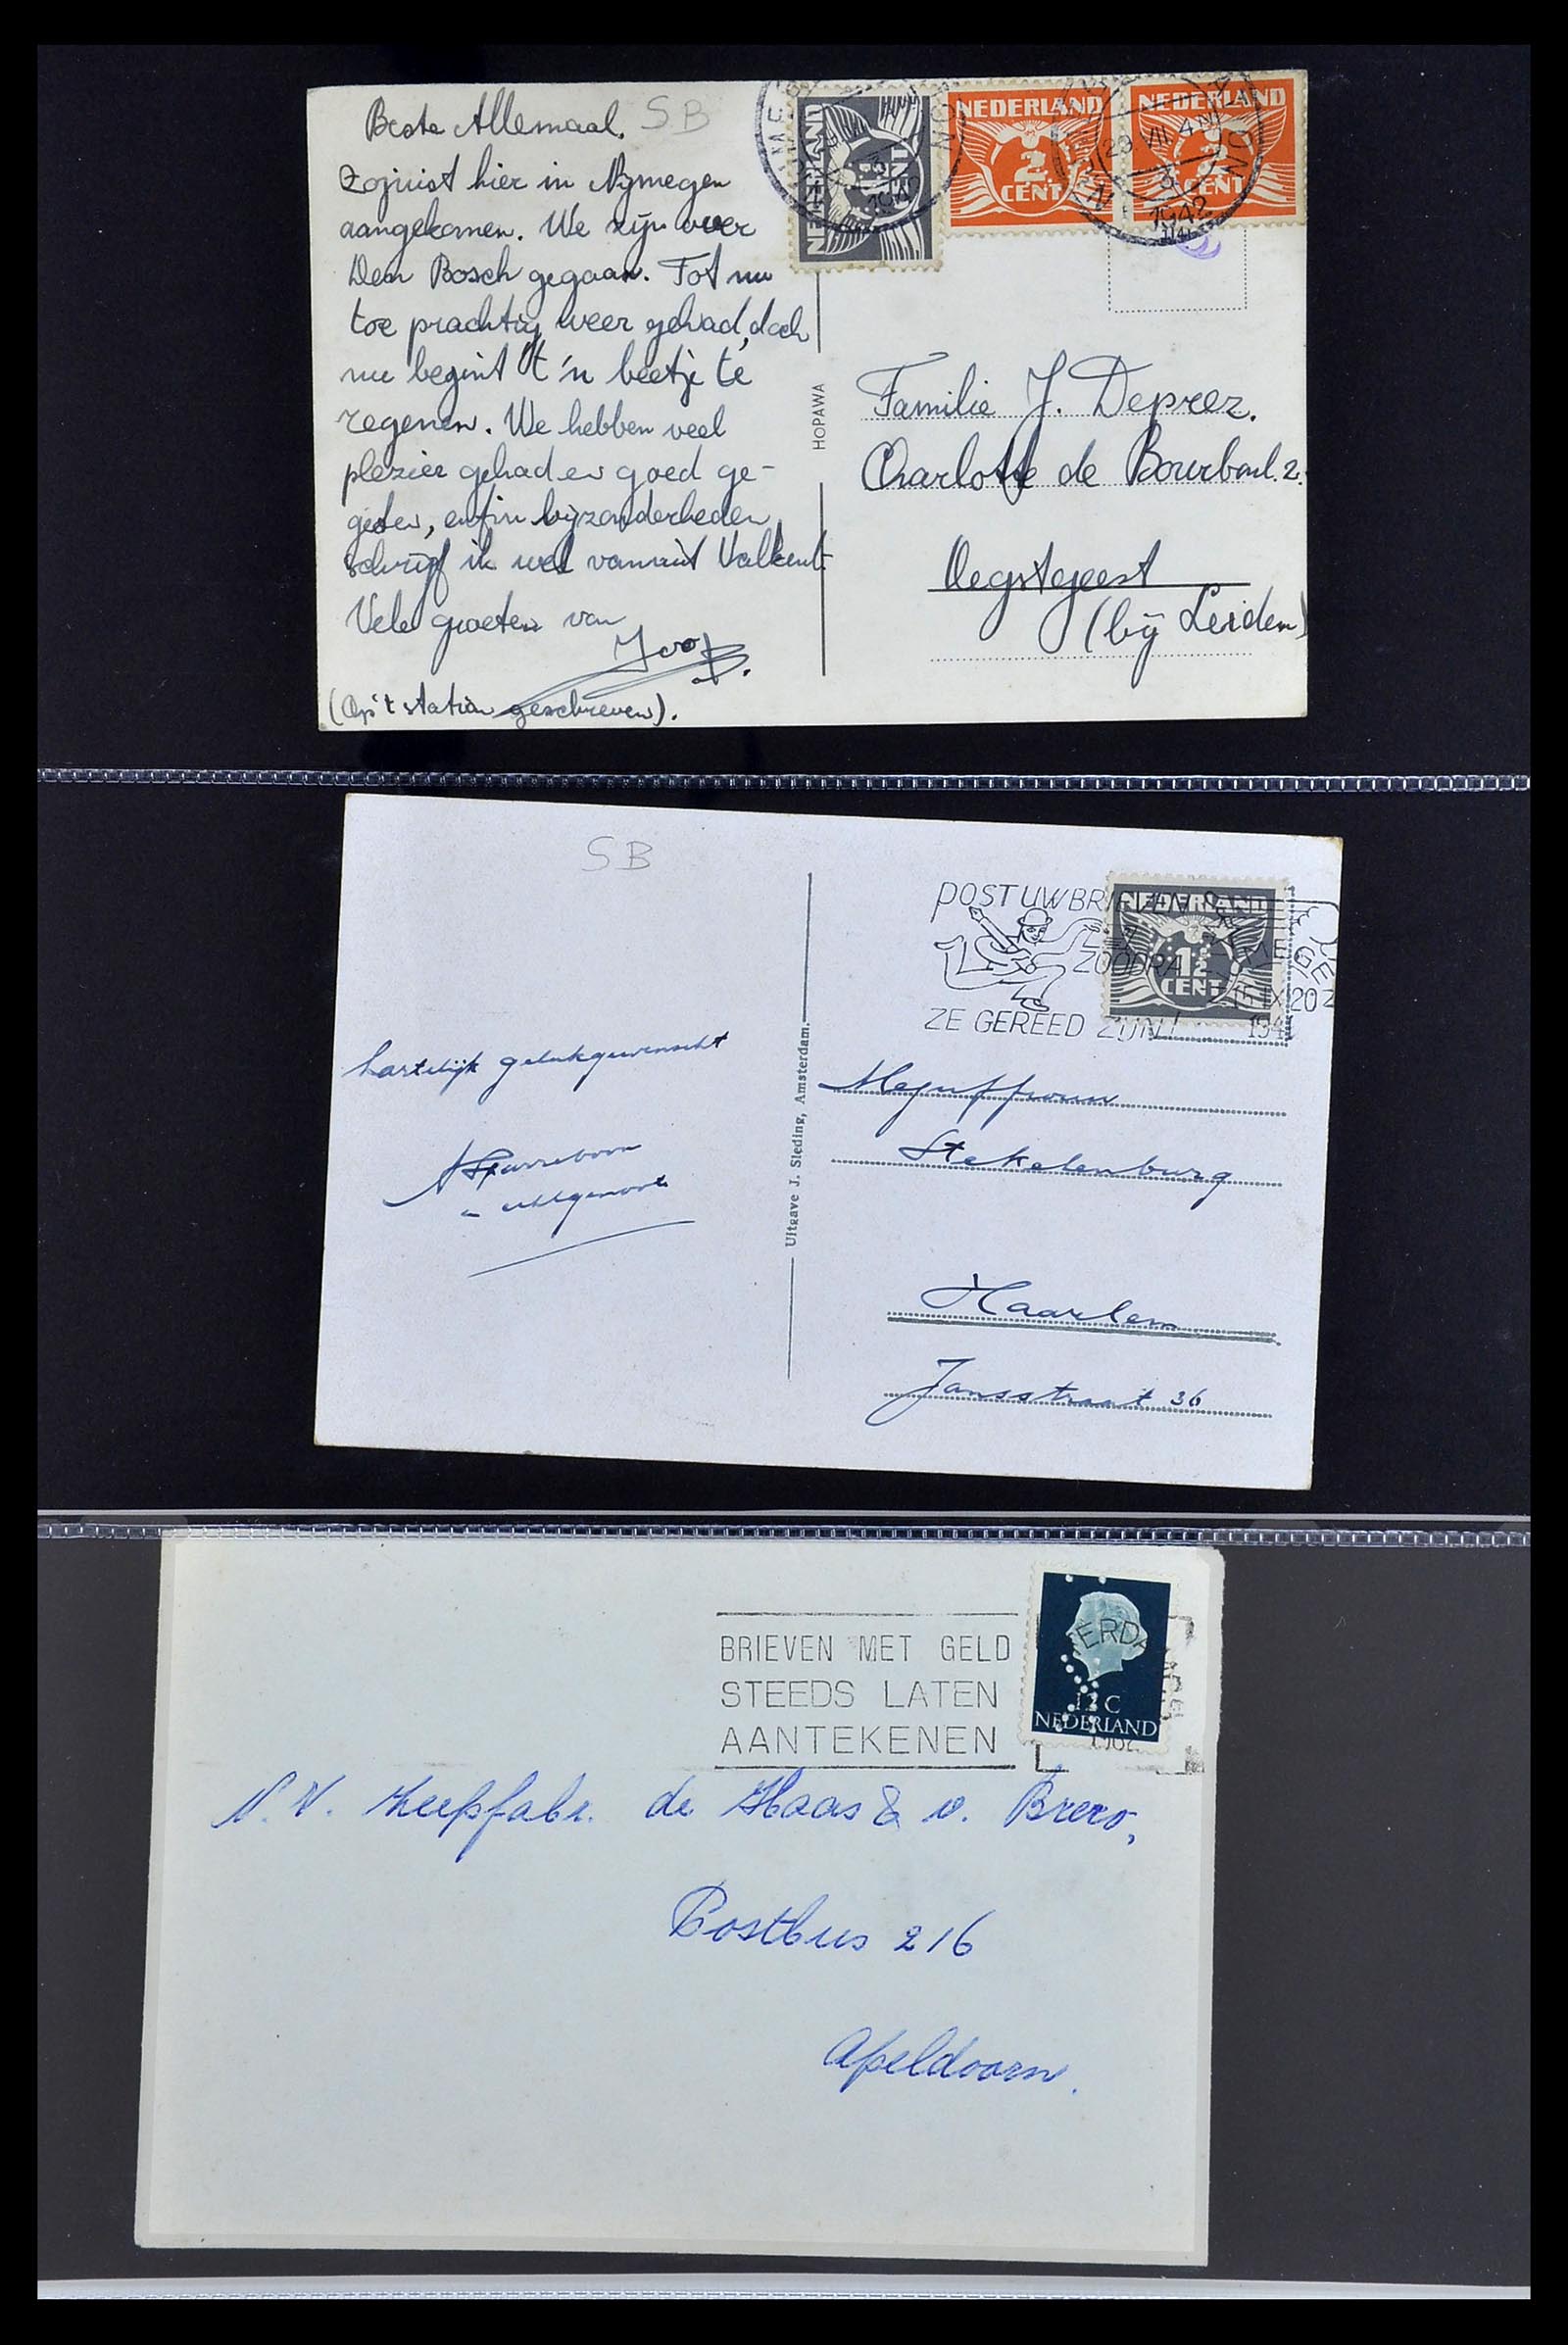 Beste Allemaal. SB
Zojuist hier in Nijmegen
aangekomen. We zijn over
Den Bosch gegaan. Tot nu
toe prachtig weer gehad, doch
nu begint 't 'n beetje te
regenen. We hebben veel
plezier gehad en goed ge-
geten, enfin bijzonderheden
schrijf ik wel vanuit Valkenb.
Vele groeten van
Joop
(Op 't station geschreven).
HOPAWA
NEDERLAND
CENT
NEDERLAND
2
CENT
NEDERLAND
2
CENT
29.VII 4 N
3
1942
Familie J. Deprez.
Charlotte de Bourbonl. 2.
Oegstgeest
(bij Leiden)
SB
POST UW BRIEVEN
ZOODRA
ZE GEREED ZIJN!
NEDERLAND
1½
CENT
15 IX 20
194
hartelijk gelukgewenscht
echtgenoote
Uitgave J. Sleding, Amsterdam.
Mejuffrouw
Stekelenburg
Haarlem
Jansstraat 36
BRIEVEN MET GELD
STEEDS LATEN
AANTEKENEN
ERDA
12 C
NEDERLAND
N.V. de Haas & v. Brero,
Postbus 216
Apeldoorn.